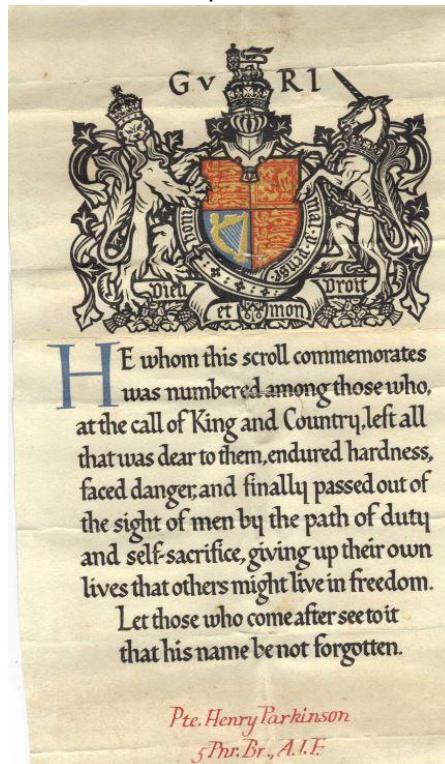 G v R I
mal y pense
Dieu et mon Droit
HE whom this scroll commemorates
was numbered among those who,
at the call of King and Country, left all
that was dear to them, endured hardness,
faced danger, and finally passed out of
the sight of men by the path of duty
and self-sacrifice, giving up their own
lives that others might live in freedom.
Let those who come after see to it
that his name be not forgotten.
Pte. Henry Parkinson
5 Pnr. Br., A.I.F.